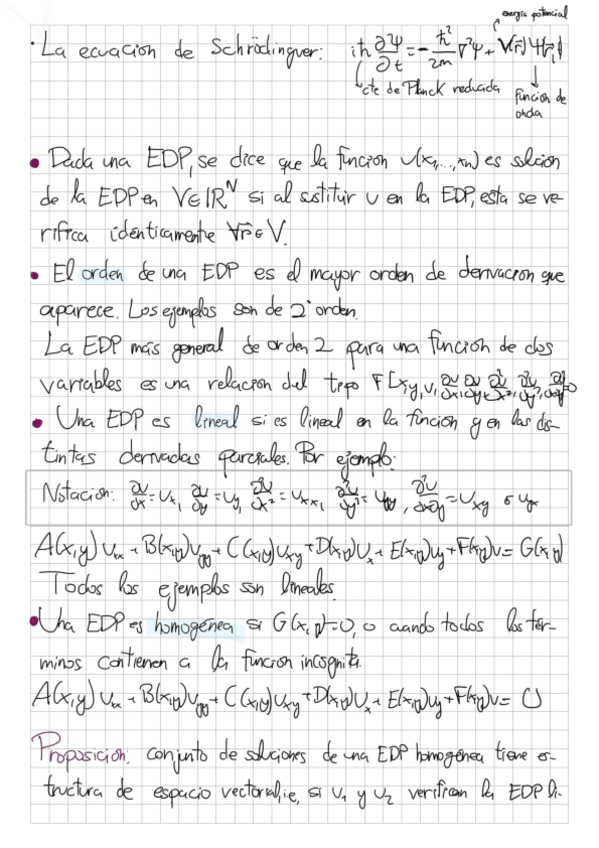 energía potencial
· La ecuación de Schrödinguer: iħ ∂Ψ/∂t = -ħ²/2m ∇²Ψ + V(r̄)Ψ(r̄,t)
cte de Planck reducida función de
onda
• Dada una EDP, se dice que la función u(x₁,...,xₙ) es solción
de la EDP en V∈IRᴺ si al sustituir u en la EDP, esta se ve-
rifica idénticamente ∀r̄∈V.
• El orden de una EDP es el mayor orden de derivación que
aparece. Los ejemplos son de 2º orden.
La EDP más general de orden 2 para una función de dos
variables es una relación del tipo F[x,y,u, ∂u/∂x, ∂u/∂y, ∂²u/∂x², ∂²u/∂y², ∂²u/∂x∂y]=0
• Una EDP es lineal si es lineal en la función y en las dis-
tintas derivadas parciales. Por ejemplo:
Notación: ∂u/∂x = uₓ, ∂u/∂y = u_y, ∂²u/∂x² = u_xx, ∂²u/∂y² = u_yy, ∂²u/∂x∂y = u_xy o u_yx
A(x,y)u_xx + B(x,y)u_yy + C(x,y)u_xy + D(x,y)u_x + E(x,y)u_y + F(x,y)u = G(x,y)
Todos los ejemplos son lineales.
• Una EDP es homogénea si G(x,y)=0, o cuando todos los tér-
minos contienen a la función incognita.
A(x,y)u_xx + B(x,y)u_yy + C(x,y)u_xy + D(x,y)u_x + E(x,y)u_y + F(x,y)u = 0
Proposición: conjunto de soluciones de una EDP homogénea tiene es-
tructura de espacio vectorial, ie, si u₁ y u₂ verifican la EDP li-